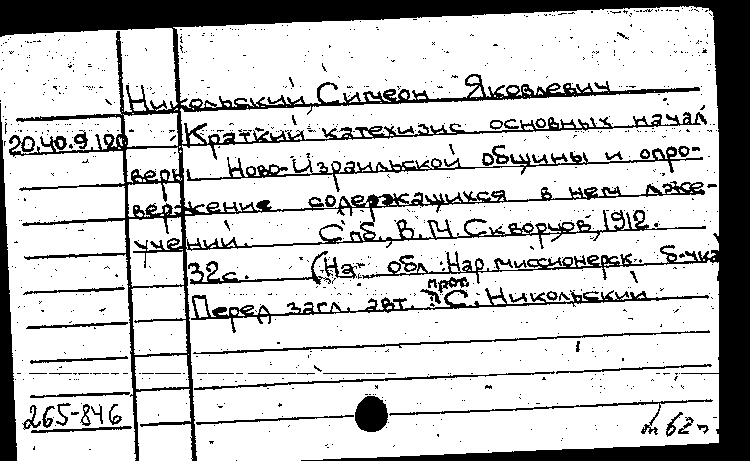 Никольский, Симеон Яковлевич
20.40.9.120 Краткий катехизис основных начал
веры Ново-Израильской общины и опро-
вержение содержащихся в нем лже-
учений. Спб., В. М. Скворцов, 1912.
32с. (На обл.: Нар. миссионерск. б-чка
прот.
Перед загл. авт. С. Никольский
265-846
62